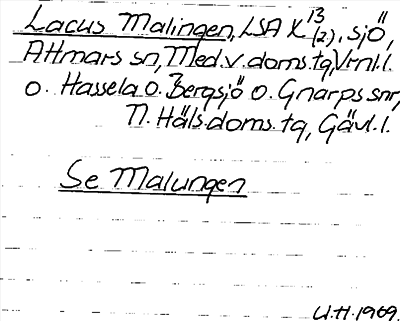 Lacus Malingen, LSA X 13 (2), sjö,
Attmars sn, Med.v.doms.tg, Vrnl.l.
o. Hassela o. Bergsjö o. Gnarps snr,
N. Häls.doms.tg, Gävl.l.
Se Malungen
U.H. 1969.